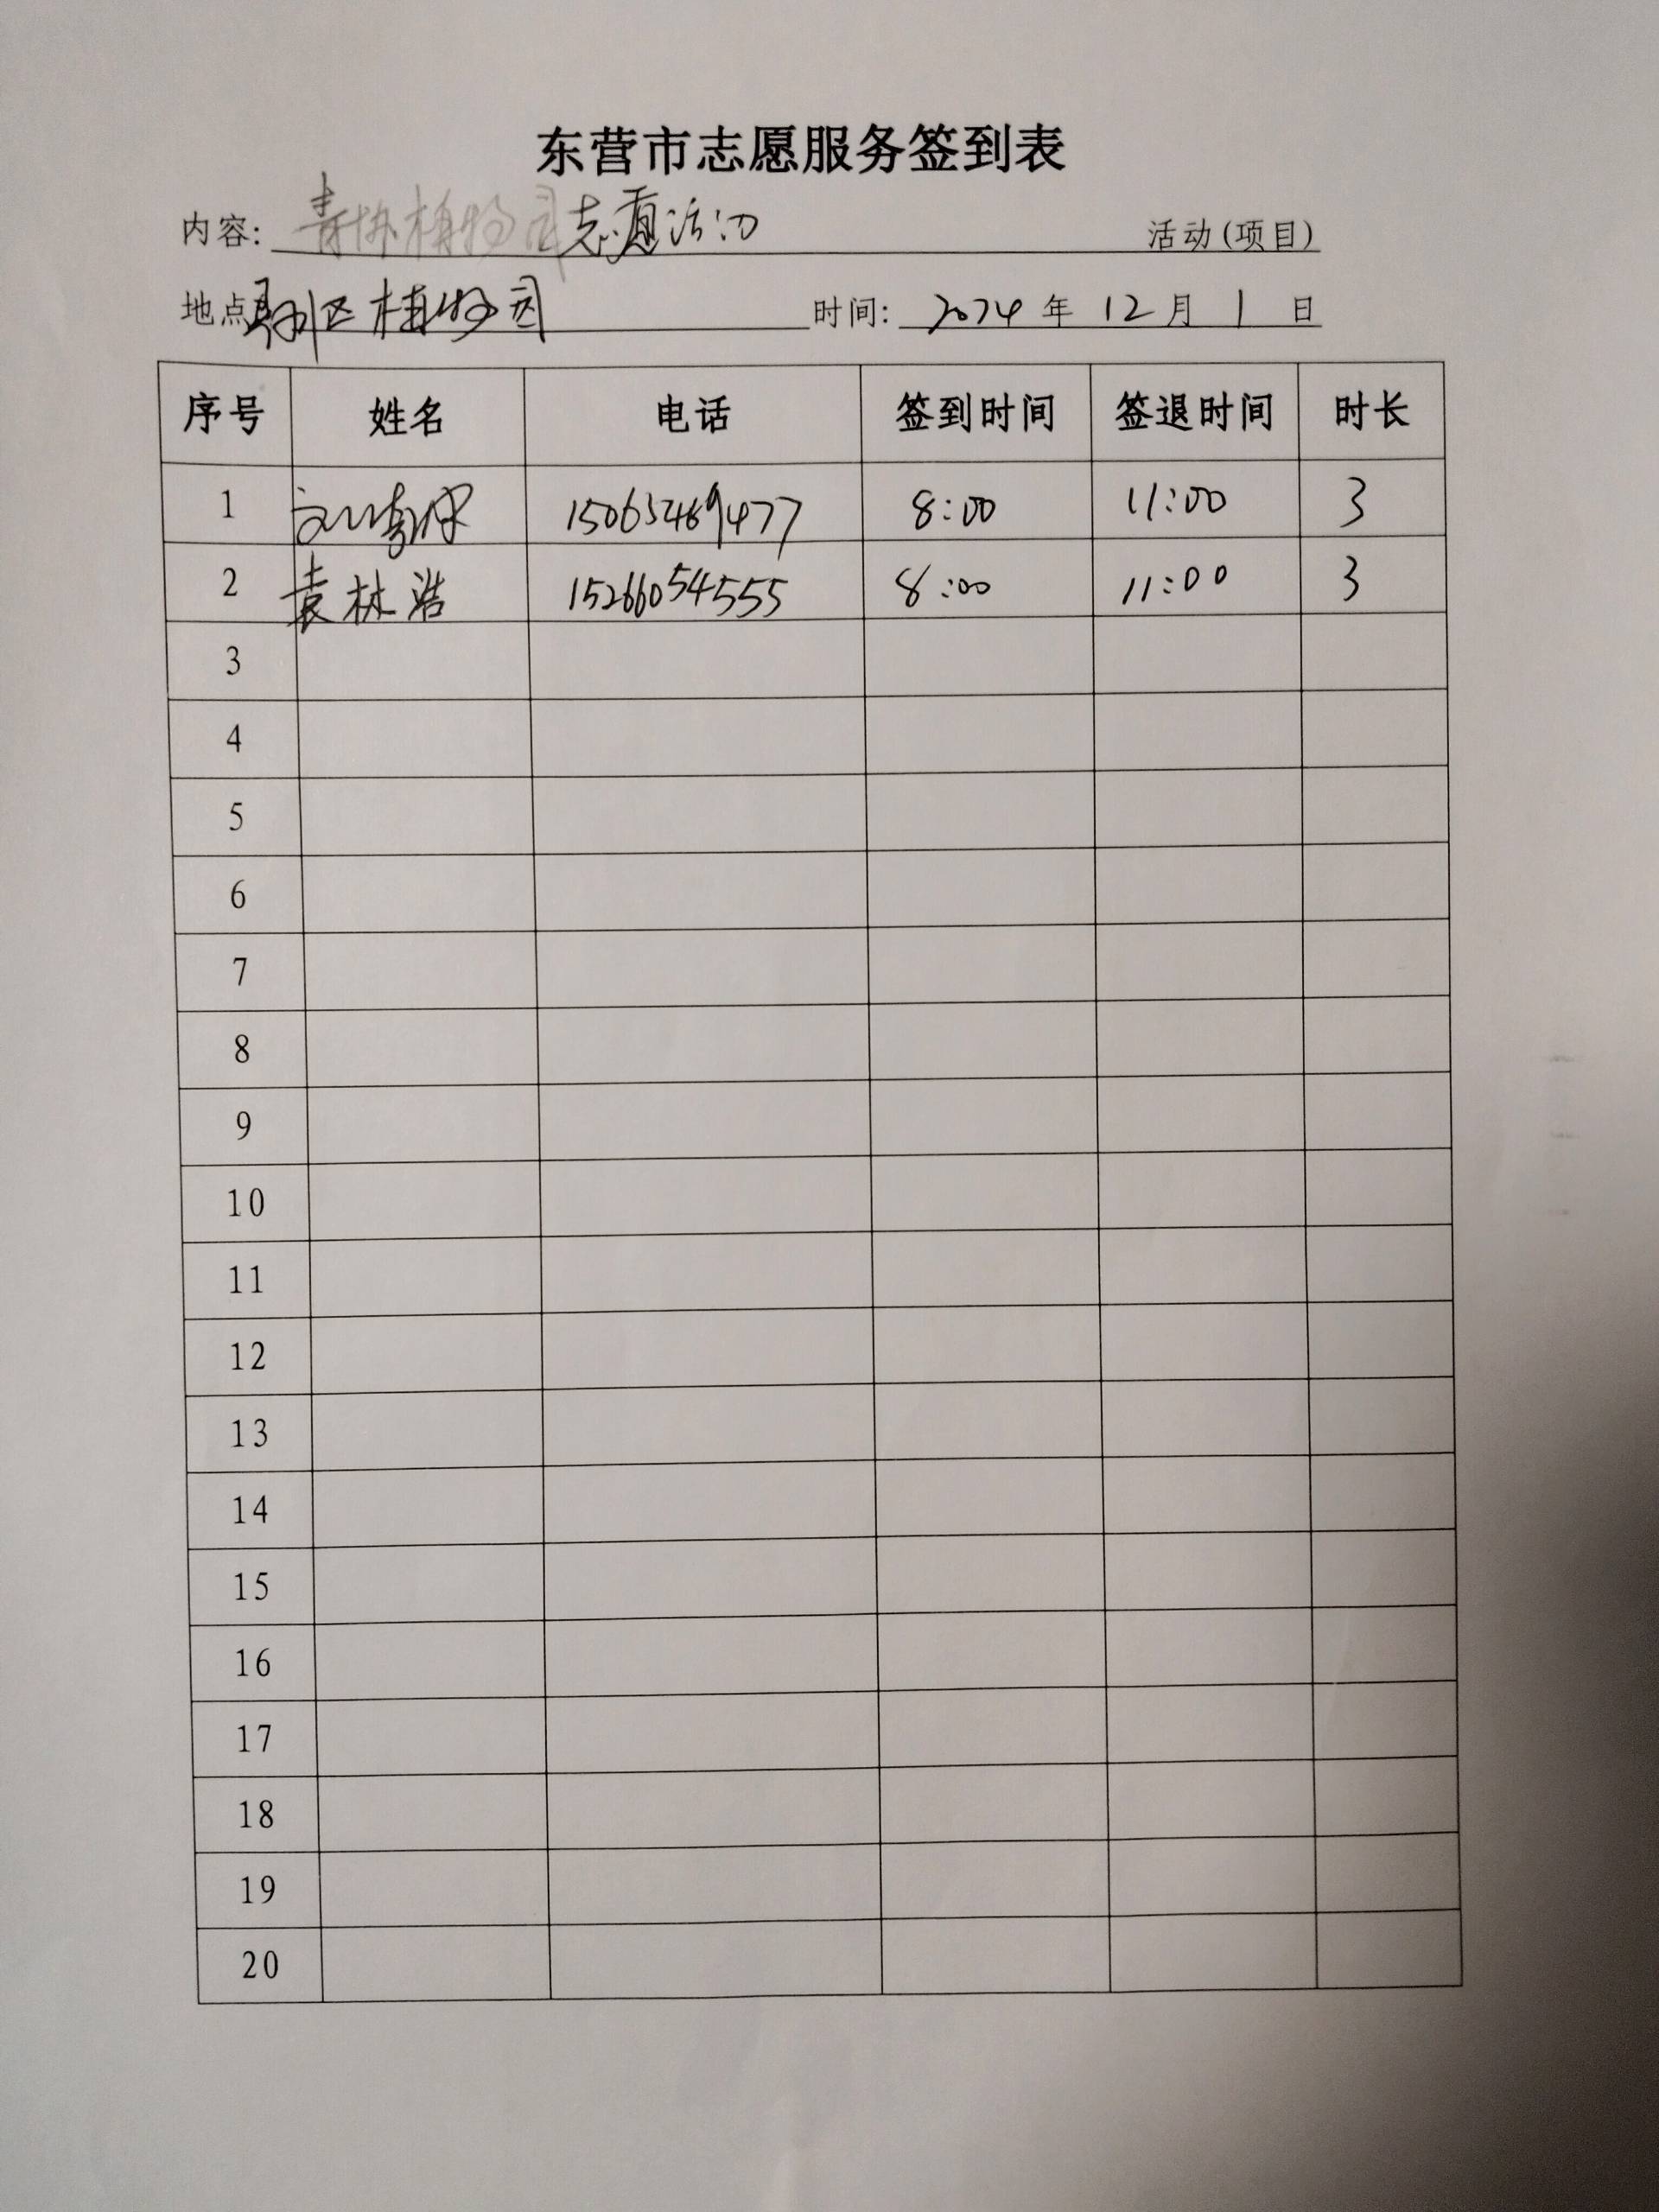 东营市志愿服务签到表
内容: 青协植物园志愿活动 活动(项目)
地点 垦利区植物园 时间: 2024 年 12 月 1 日
序号 姓名 电话 签到时间 签退时间 时长
1 8:00 11:00 3
2 袁林浩 15266054555 8:00 11:00 3
3
4
5
6
7
8
9
10
11
12
13
14
15
16
17
18
19
20